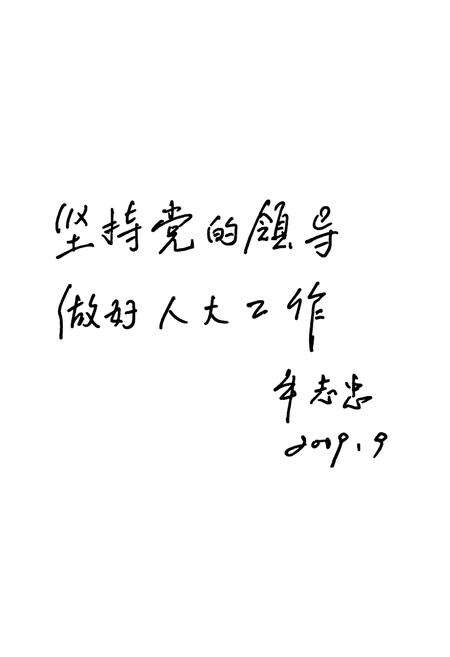 坚持党的領导
做好人大工作
牟志忠
2009.9